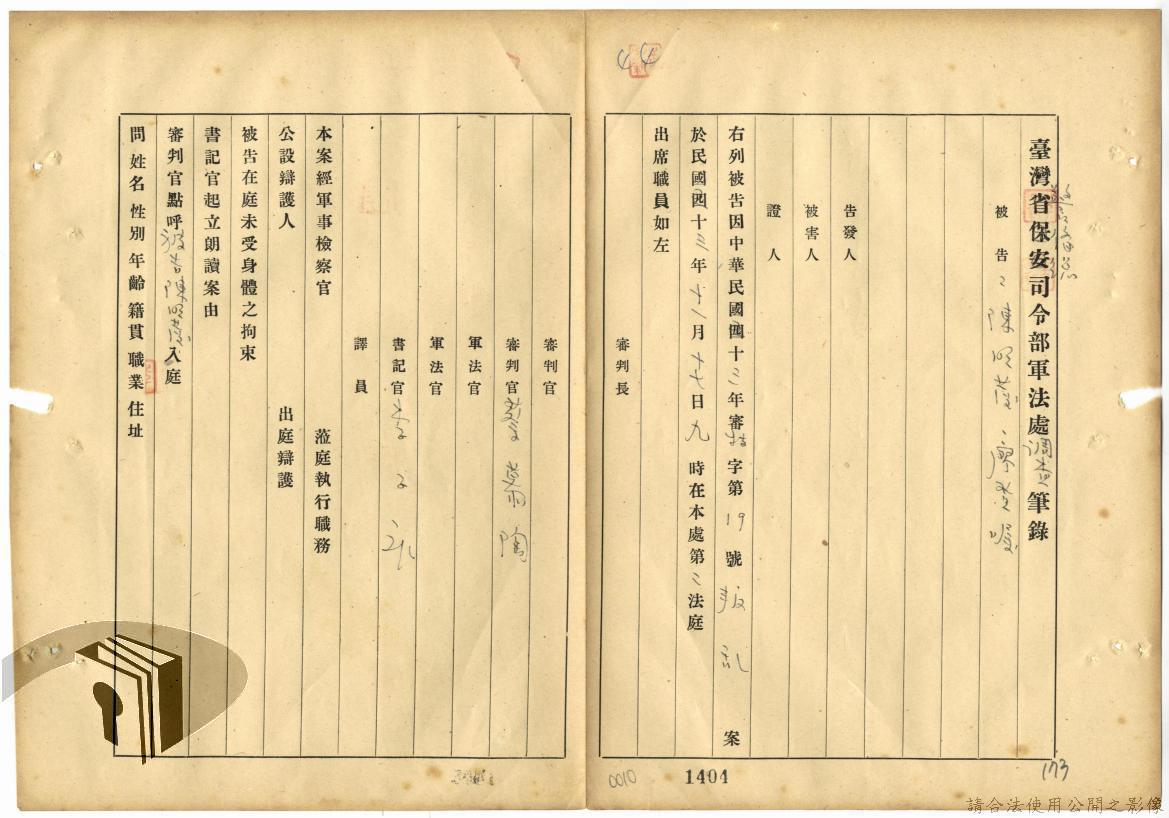 44
臺灣省保安司令部軍法處調查筆錄
被告 陳明
告發人
被害人
證人
右列被告因中華民國四十三年審特字第19號叛亂案
於民國四十三年十一月十七日九時在本處第二法庭
出席職員如左
審判長
審判官
審判官
軍法官
軍法官
書記官 李
譯員
本案經軍事檢察官 蒞庭執行職務
公設辯護人 出庭辯護
被告在庭未受身體之拘束
書記官起立朗讀案由
審判官點呼被告陳明入庭
問 姓名 性別 年齡 籍貫 職業 住址
0010
1404
173
請合法使用公開之影像